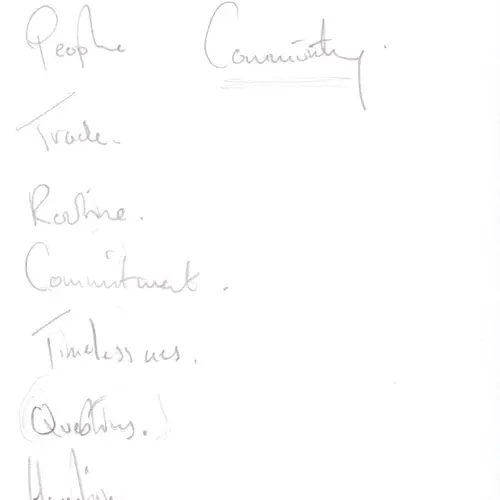 People Community.
Trade.
Routine.
Commitment.
Timelessness.
Questions.